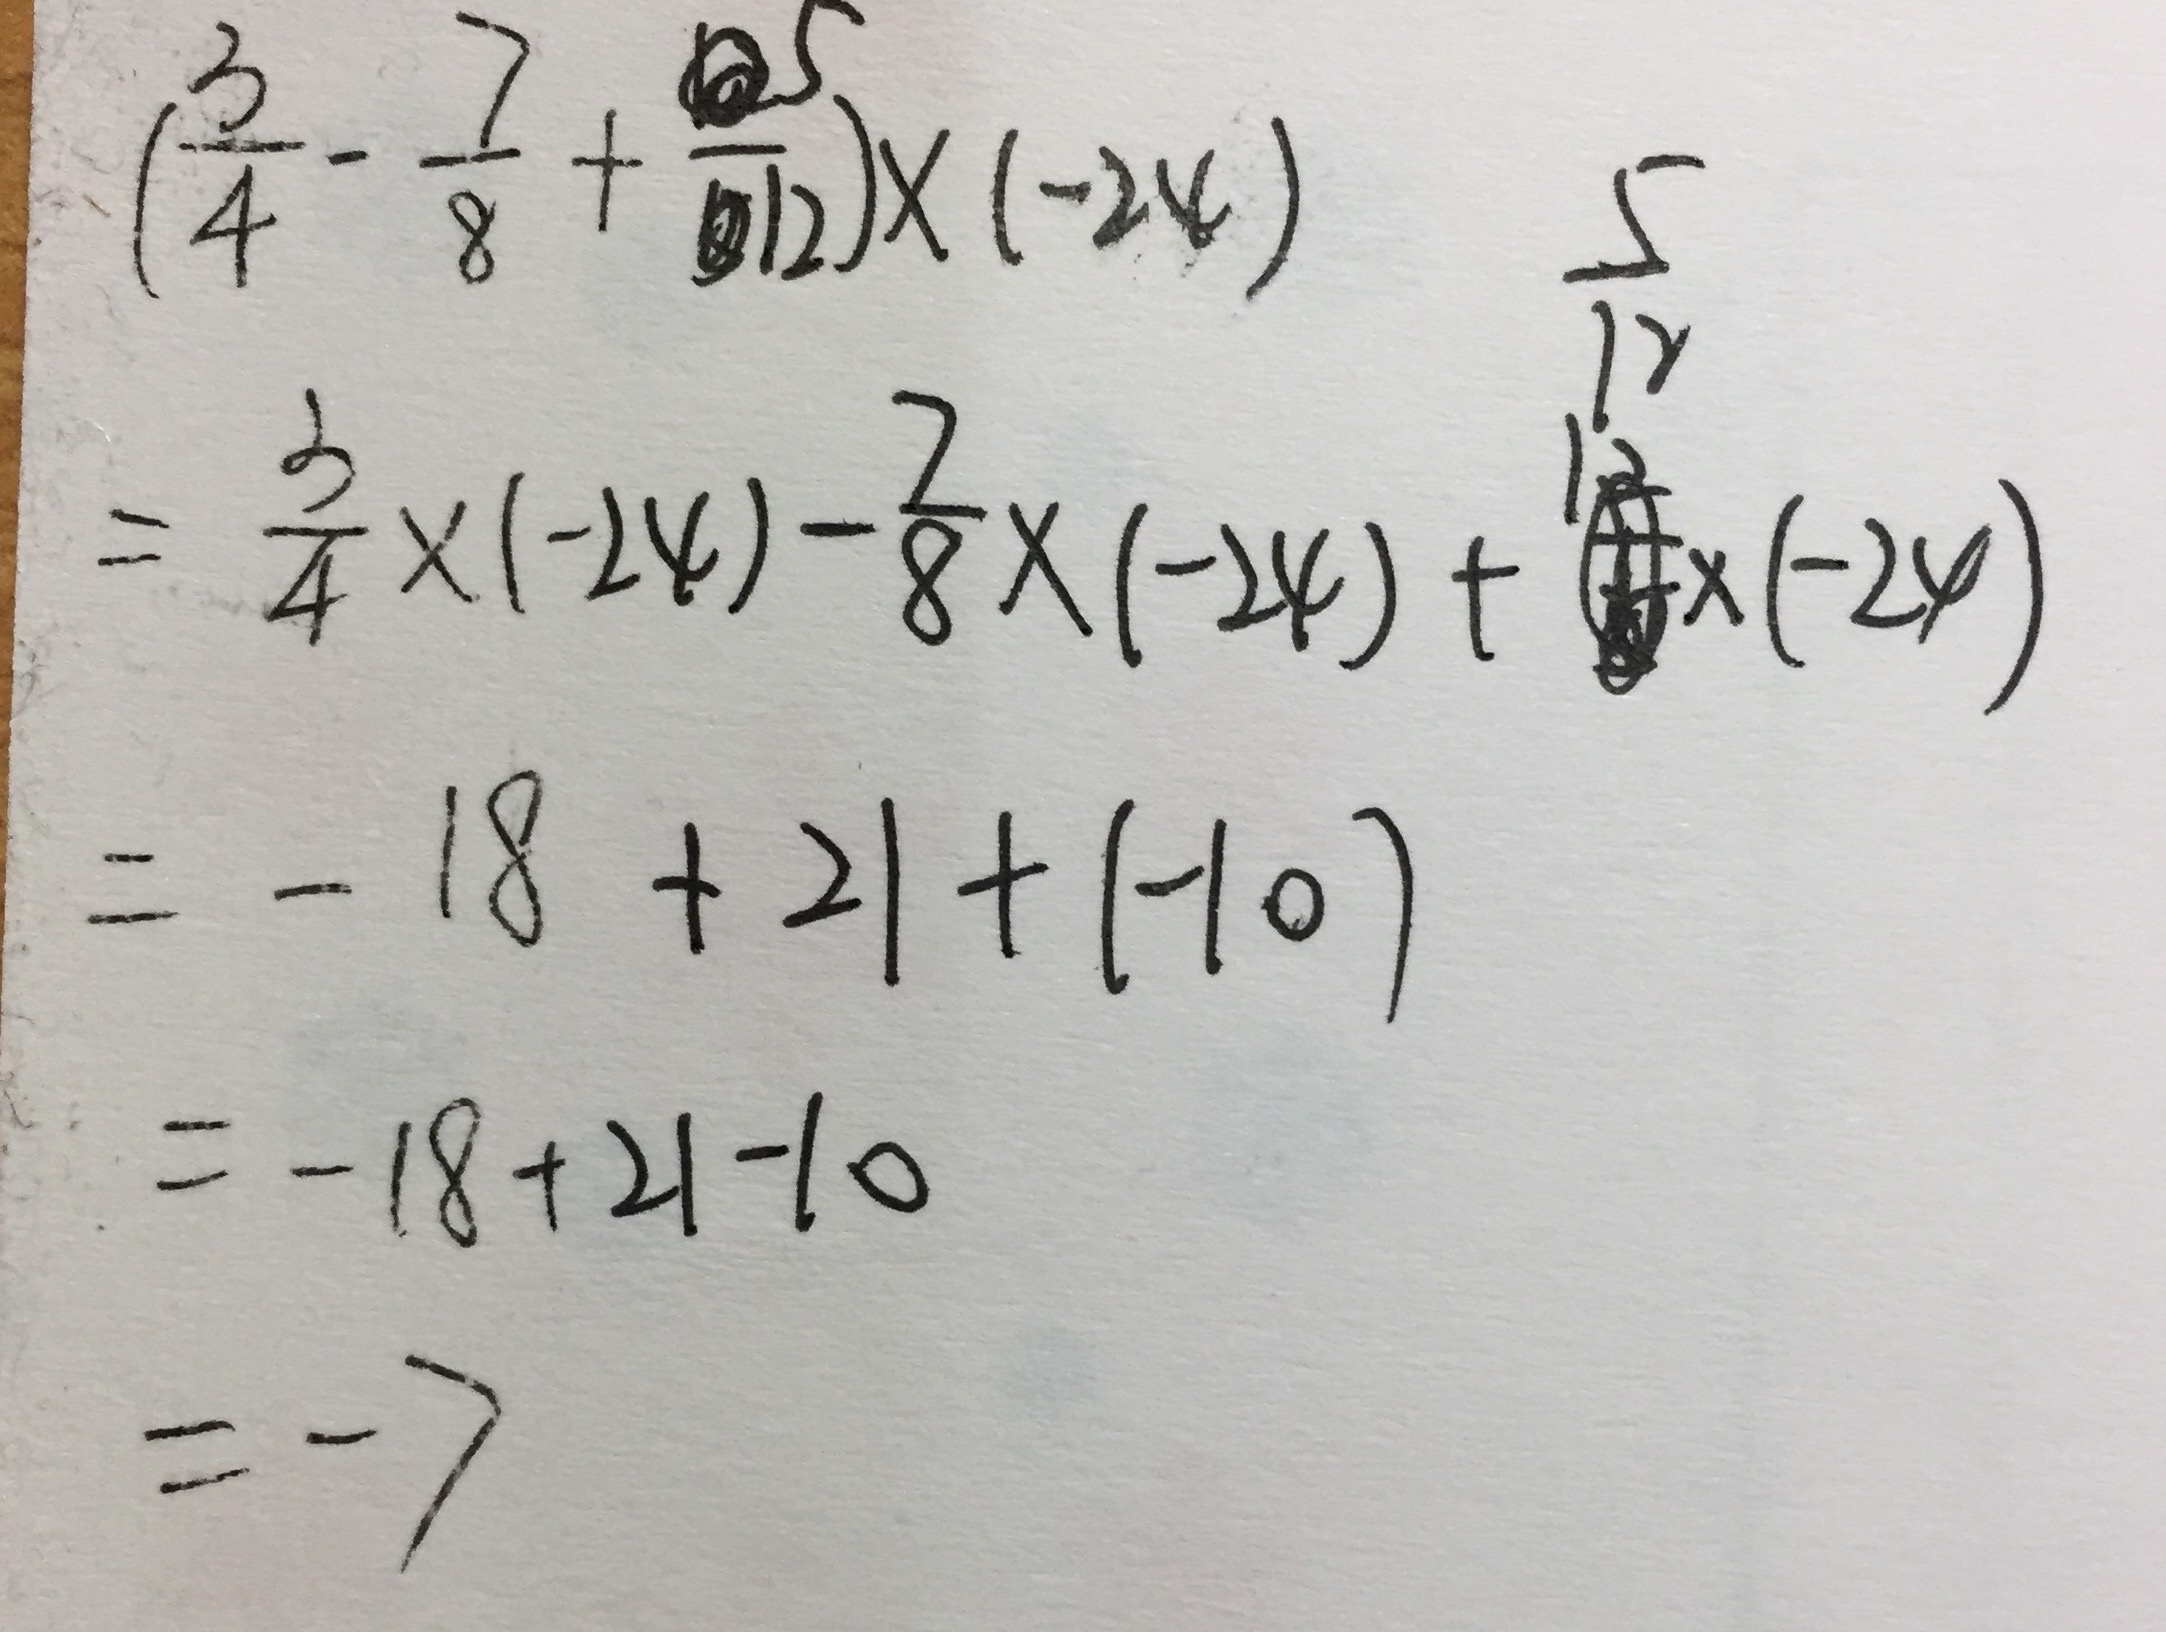 (3/4 - 7/8 + 5/12) × (-24)
= 3/4 × (-24) - 7/8 × (-24) + 5/12 × (-24)
= - 18 + 21 + (-10)
= - 18 + 21 - 10
= - 7